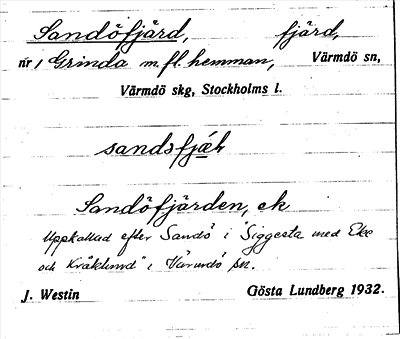 Sandöfjärd, fjärd,
nr 1 Grinda m. fl. hemman, Värmdö sn,
Värmdö skg, Stockholms l.
sandsfjæ̱
Sandöfjärden, ek
Uppkallad efter Sandö i "Siggesta med Eke
och Kråklund" i Värmdö sn.
J. Westin Gösta Lundberg 1932.